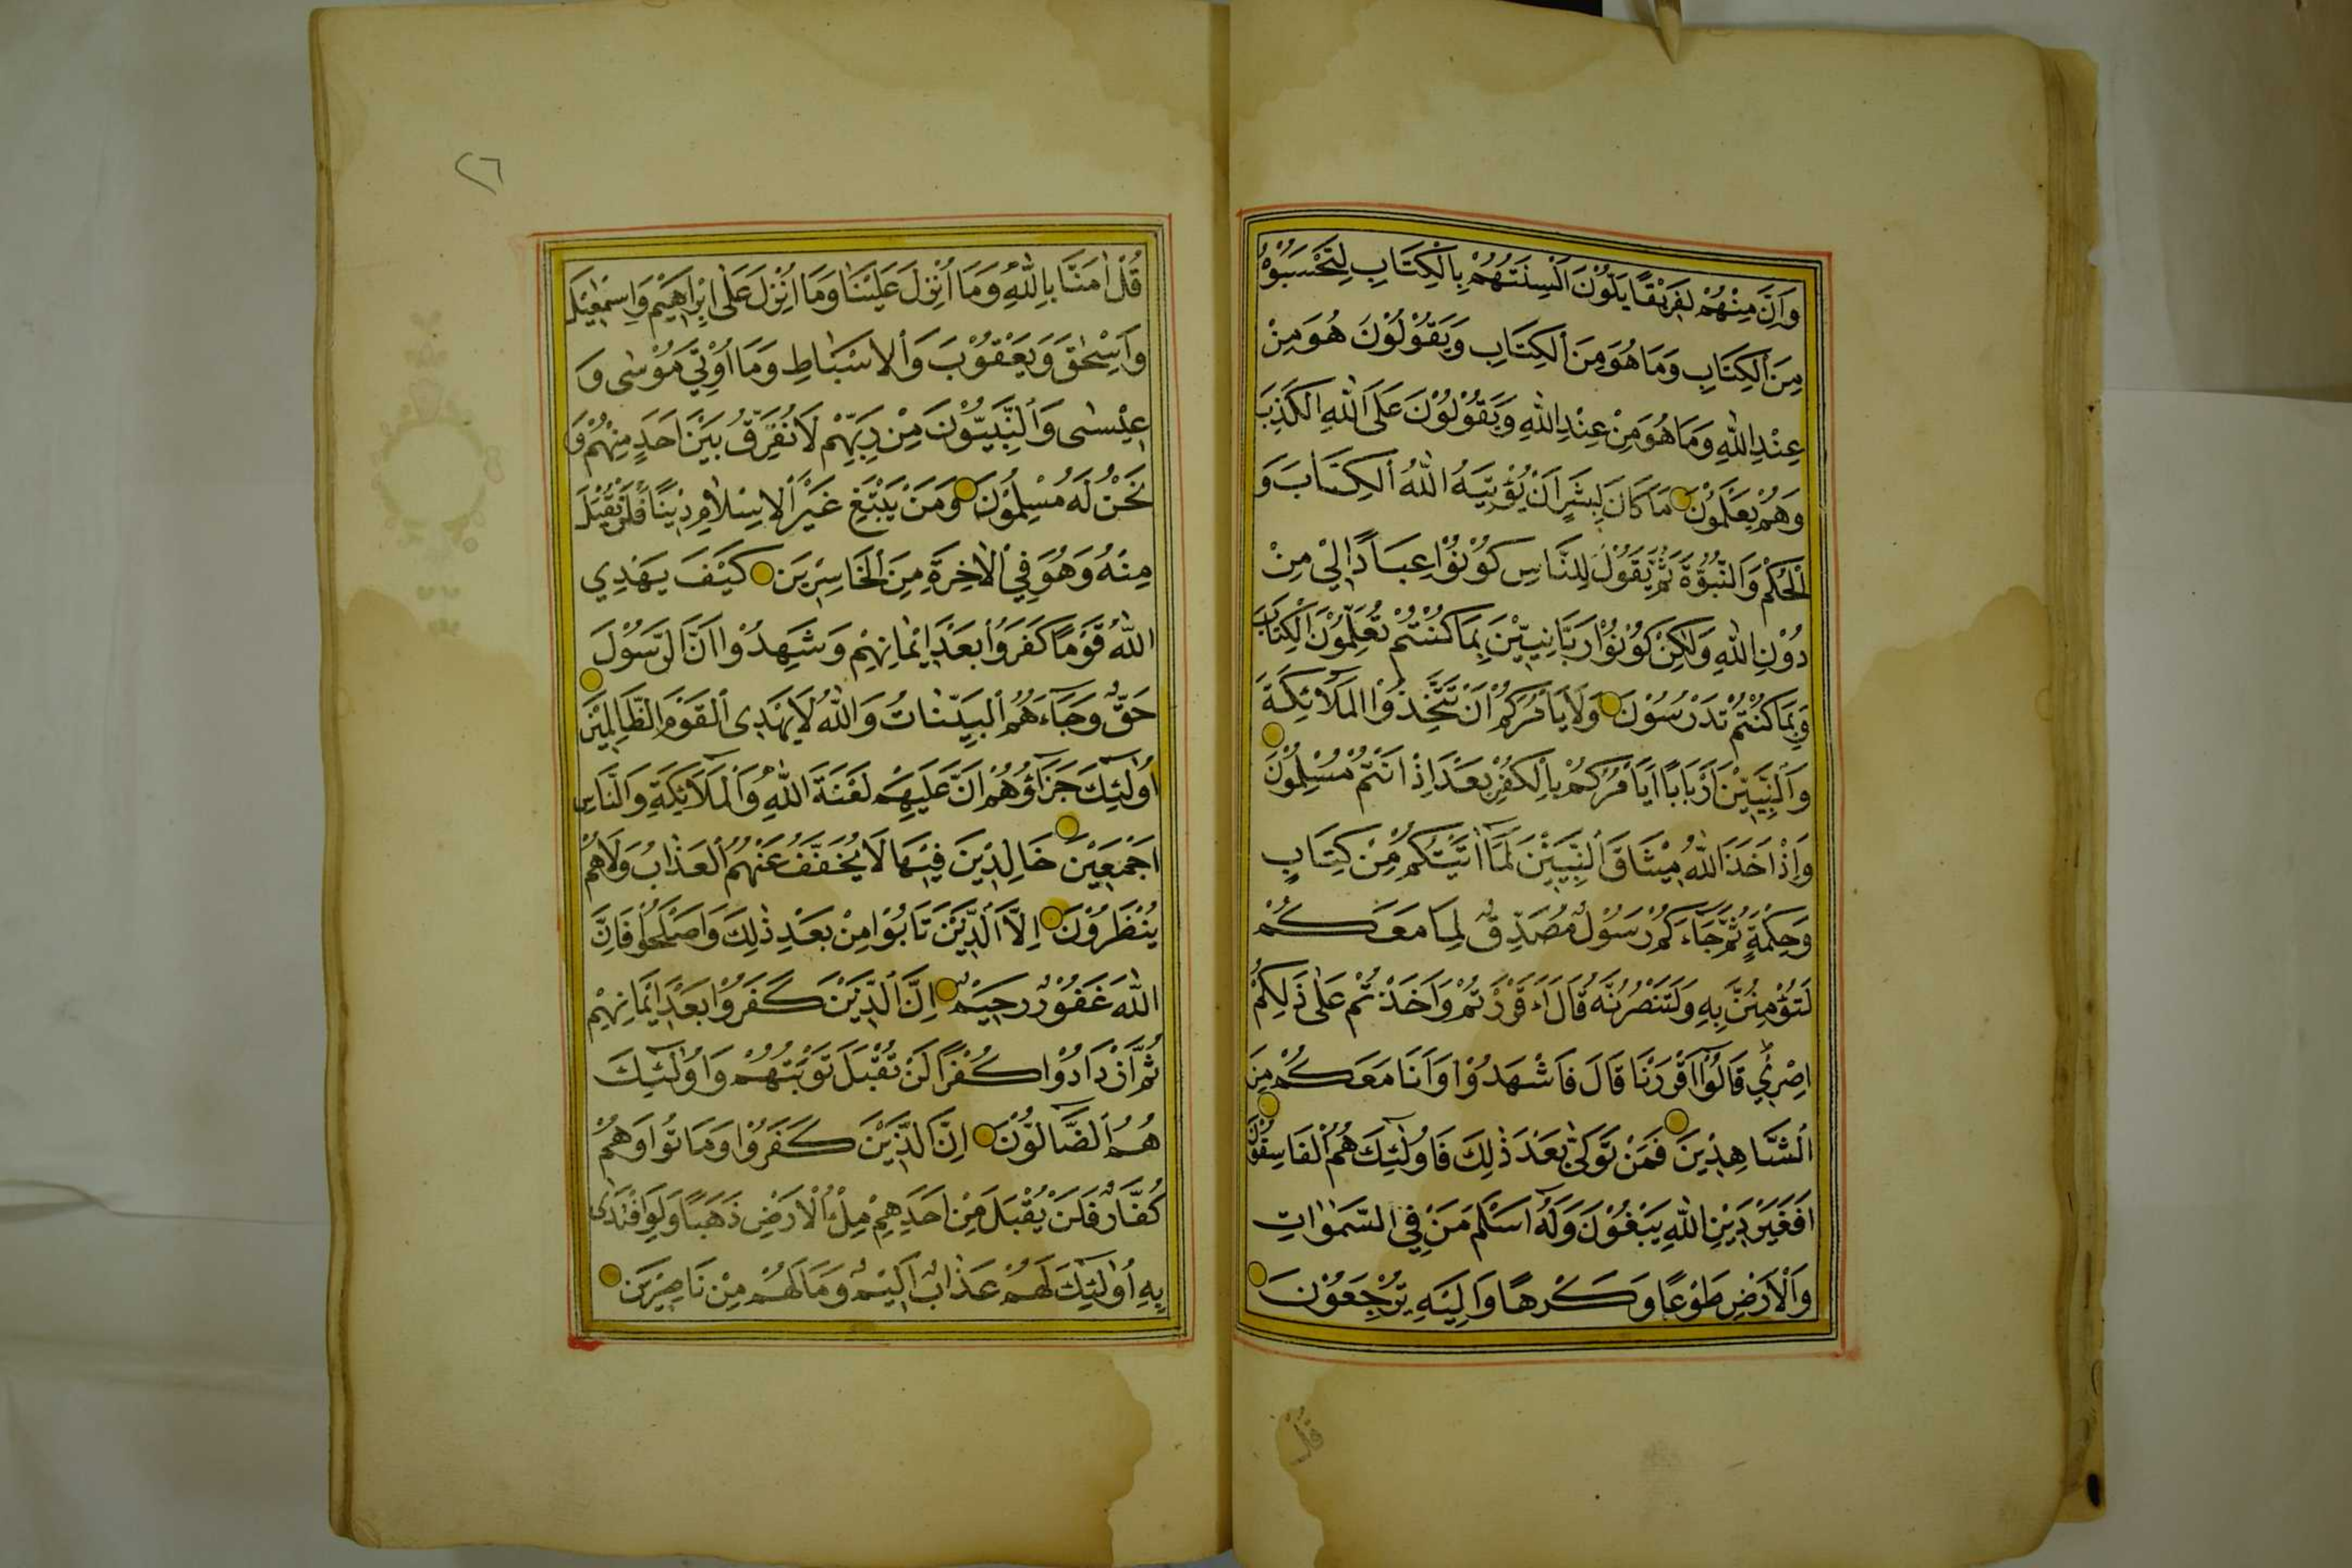 وَاِنَّ مِنْهُمْ لَفَرِيْقًا يَلْوُنَ اَلْسِنَتَهُمْ بِالْكِتَابِ لِتَحْسَبُوْهُ
مِنَ الْكِتَابِ وَمَا هُوَ مِنَ الْكِتَابِ وَيَقُوْلُوْنَ هُوَ مِنْ
عِنْدِ اللّٰهِ وَمَا هُوَ مِنْ عِنْدِ اللّٰهِ وَيَقُوْلُوْنَ عَلَى اللّٰهِ الْكَذِبَ
وَهُمْ يَعْلَمُوْنَ مَا كَانَ لِبَشَرٍ اَنْ يُؤْتِيَهُ اللّٰهُ الْكِتَابَ وَ
الْحُكْمَ وَالنُّبُوَّةَ ثُمَّ يَقُوْلَ لِلنَّاسِ كُوْنُوْا عِبَادًا لِيْ مِنْ
دُوْنِ اللّٰهِ وَلٰكِنْ كُوْنُوْا رَبَّانِيّٖنَ بِمَا كُنْتُمْ تُعَلِّمُوْنَ الْكِتَابَ
وَبِمَا كُنْتُمْ تَدْرُسُوْنَ وَلَا يَاْمُرَكُمْ اَنْ تَتَّخِذُوا الْمَلَائِكَةَ
وَالنَّبِيّٖنَ اَرْبَابًا اَيَاْمُرُكُمْ بِالْكُفْرِ بَعْدَ اِذْ اَنْتُمْ مُسْلِمُوْنَ
وَاِذْ اَخَذَ اللّٰهُ مِيْثَاقَ النَّبِيّٖنَ لَمَا اٰتَيْتُكُمْ مِنْ كِتَابٍ
وَحِكْمَةٍ ثُمَّ جَاءَكُمْ رَسُوْلٌ مُصَدِّقٌ لِمَا مَعَكُمْ
لَتُؤْمِنُنَّ بِهِ وَلَتَنْصُرُنَّهُ قَالَ ءَاَقْرَرْتُمْ وَاَخَذْتُمْ عَلٰى ذٰلِكُمْ
اِصْرِيْ قَالُوْا اَقْرَرْنَا قَالَ فَاشْهَدُوْا وَاَنَا مَعَكُمْ مِنَ
الشَّاهِدِيْنَ فَمَنْ تَوَلّٰى بَعْدَ ذٰلِكَ فَاُولٰئِكَ هُمُ الْفَاسِقُوْنَ
اَفَغَيْرَ دِيْنِ اللّٰهِ يَبْغُوْنَ وَلَهُ اَسْلَمَ مَنْ فِي السَّمٰوَاتِ
وَالْاَرْضِ طَوْعًا وَكَرْهًا وَاِلَيْهِ تُرْجَعُوْنَ
قُلْ
٢٦
قُلْ اٰمَنَّا بِاللّٰهِ وَمَا اُنْزِلَ عَلَيْنَا وَمَا اُنْزِلَ عَلٰى اِبْرَاهِيْمَ وَاِسْمٰعِيْلَ
وَاِسْحٰقَ وَيَعْقُوْبَ وَالْاَسْبَاطِ وَمَا اُوْتِيَ مُوْسٰى وَ
عِيْسٰى وَالنَّبِيُّوْنَ مِنْ رَبِّهِمْ لَا نُفَرِّقُ بَيْنَ اَحَدٍ مِنْهُمْ وَ
نَحْنُ لَهُ مُسْلِمُوْنَ وَمَنْ يَبْتَغِ غَيْرَ الْاِسْلَامِ دِيْنًا فَلَنْ يُقْبَلَ
مِنْهُ وَهُوَ فِي الْاٰخِرَةِ مِنَ الْخَاسِرِيْنَ كَيْفَ يَهْدِي
اللّٰهُ قَوْمًا كَفَرُوْا بَعْدَ اِيْمَانِهِمْ وَشَهِدُوْا اَنَّ الرَّسُوْلَ
حَقٌّ وَجَاءَهُمُ الْبَيِّنَاتُ وَاللّٰهُ لَا يَهْدِى الْقَوْمَ الظَّالِمِيْنَ
اُولٰئِكَ جَزَاؤُهُمْ اَنَّ عَلَيْهِمْ لَعْنَةَ اللّٰهِ وَالْمَلَائِكَةِ وَالنَّاسِ
اَجْمَعِيْنَ خَالِدِيْنَ فِيْهَا لَا يُخَفَّفُ عَنْهُمُ الْعَذَابُ وَلَا هُمْ
يُنْظَرُوْنَ اِلَّا الَّذِيْنَ تَابُوْا مِنْ بَعْدِ ذٰلِكَ وَاَصْلَحُوْا فَاِنَّ
اللّٰهَ غَفُوْرٌ رَحِيْمٌ اِنَّ الَّذِيْنَ كَفَرُوْا بَعْدَ اِيْمَانِهِمْ
ثُمَّ ازْدَادُوْا كُفْرًا لَنْ تُقْبَلَ تَوْبَتُهُمْ وَاُولٰئِكَ
هُمُ الضَّالُّوْنَ اِنَّ الَّذِيْنَ كَفَرُوْا وَمَاتُوا وَهُمْ
كُفَّارٌ فَلَنْ يُقْبَلَ مِنْ اَحَدِهِمْ مِلْءُ الْاَرْضِ ذَهَبًا وَلَوِ افْتَدٰى
بِهِ اُولٰئِكَ لَهُمْ عَذَابٌ اَلِيْمٌ وَمَا لَهُمْ مِنْ نَاصِرِيْنَ